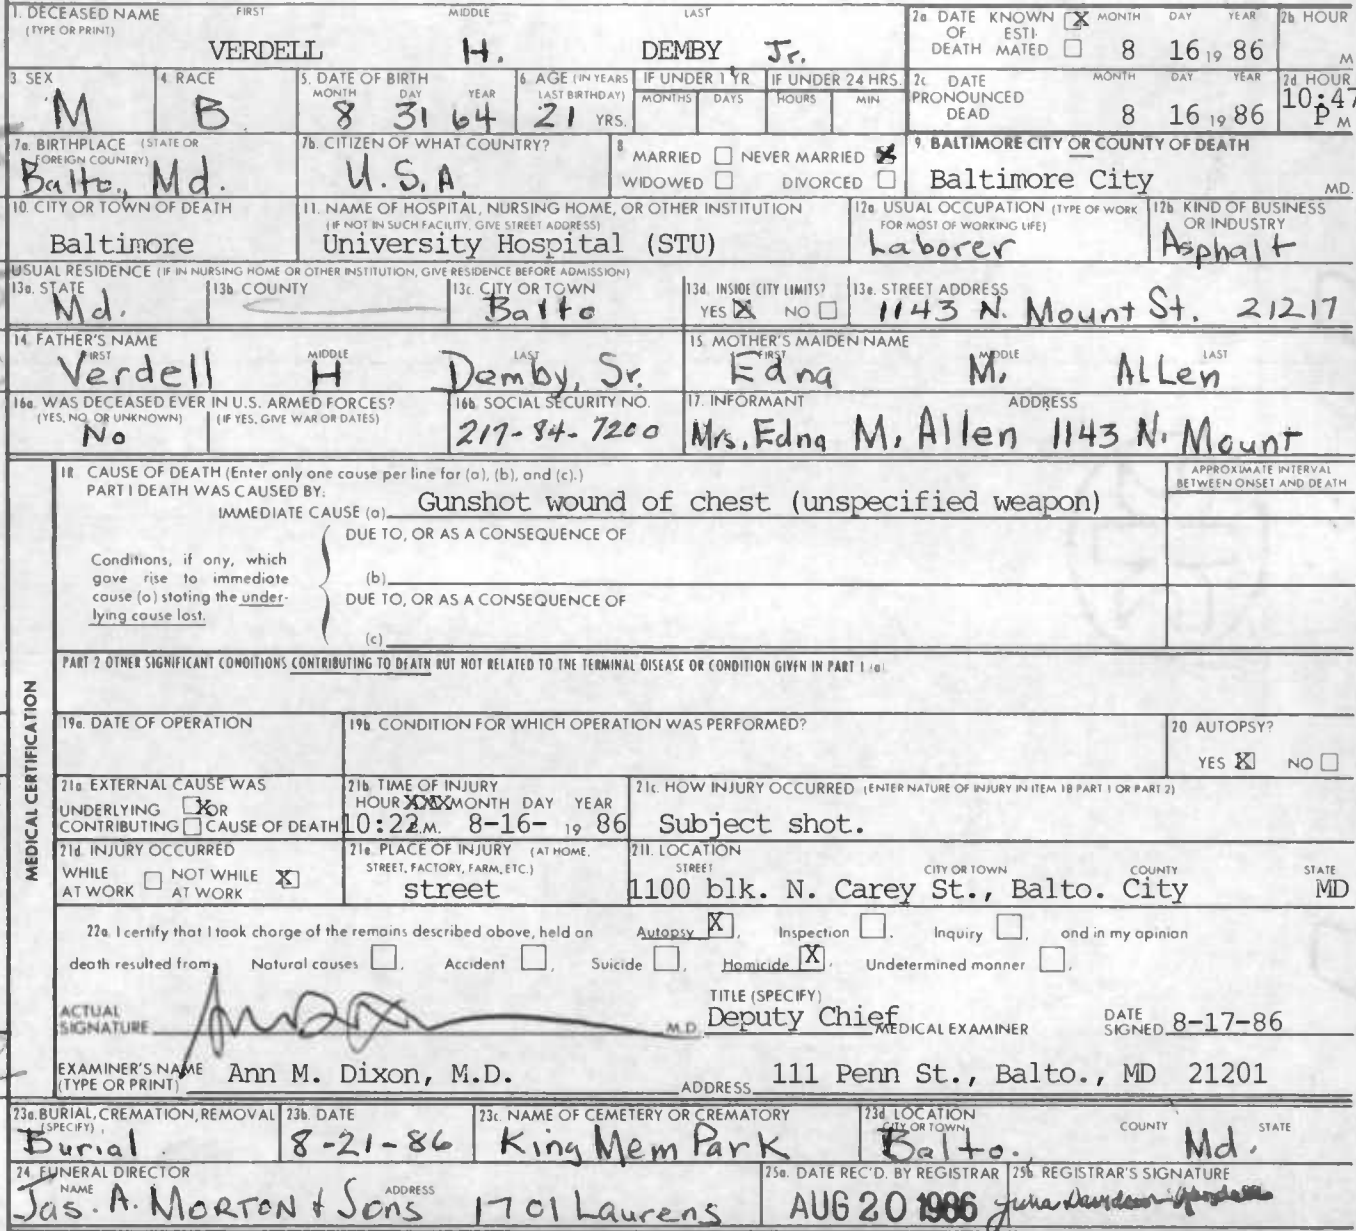 1. DECEASED NAME FIRST MIDDLE LAST
(TYPE OR PRINT)
VERDELL H. DEMBY Jr.
2a DATE KNOWN X MONTH DAY YEAR
OF ESTI-
DEATH MATED 8 16 19 86
2b HOUR
M
3. SEX
M
4. RACE
B
5. DATE OF BIRTH
MONTH DAY YEAR
8 31 64
6. AGE (IN YEARS
LAST BIRTHDAY)
21 YRS.
IF UNDER 1 YR.
MONTHS DAYS
IF UNDER 24 HRS.
HOURS MIN
2c. DATE MONTH DAY YEAR
PRONOUNCED
DEAD 8 16 19 86
2d HOUR
10:47
P M
7a. BIRTHPLACE (STATE OR
FOREIGN COUNTRY)
Balto., Md.
7b. CITIZEN OF WHAT COUNTRY?
U.S.A.
8
MARRIED NEVER MARRIED X
WIDOWED DIVORCED
9. BALTIMORE CITY OR COUNTY OF DEATH
Baltimore City MD.
10. CITY OR TOWN OF DEATH
Baltimore
11. NAME OF HOSPITAL, NURSING HOME, OR OTHER INSTITUTION
(IF NOT IN SUCH FACILITY, GIVE STREET ADDRESS)
University Hospital (STU)
12a. USUAL OCCUPATION (TYPE OF WORK
FOR MOST OF WORKING LIFE)
Laborer
12b KIND OF BUSINESS
OR INDUSTRY
Asphalt
USUAL RESIDENCE (IF IN NURSING HOME OR OTHER INSTITUTION, GIVE RESIDENCE BEFORE ADMISSION)
13a. STATE
Md.
13b. COUNTY
13c. CITY OR TOWN
Balto
13d. INSIDE CITY LIMITS?
YES X NO
13e. STREET ADDRESS
1143 N. Mount St. 21217
14. FATHER'S NAME
FIRST MIDDLE LAST
Verdell H Demby, Sr.
15. MOTHER'S MAIDEN NAME
FIRST MIDDLE LAST
Edna M. Allen
16a. WAS DECEASED EVER IN U.S. ARMED FORCES?
(YES, NO, OR UNKNOWN) (IF YES, GIVE WAR OR DATES)
No
16b. SOCIAL SECURITY NO.
217-84-7200
17. INFORMANT ADDRESS
Mrs. Edna M. Allen 1143 N. Mount
MEDICAL CERTIFICATION
18. CAUSE OF DEATH (Enter only one cause per line for (a), (b), and (c).)
PART I DEATH WAS CAUSED BY:
IMMEDIATE CAUSE (a) Gunshot wound of chest (unspecified weapon)
APPROXIMATE INTERVAL
BETWEEN ONSET AND DEATH
DUE TO, OR AS A CONSEQUENCE OF
Conditions, if any, which
gave rise to immediate
cause (a) stating the under-
lying cause last.
(b)
DUE TO, OR AS A CONSEQUENCE OF
(c)
PART 2 OTHER SIGNIFICANT CONDITIONS CONTRIBUTING TO DEATH BUT NOT RELATED TO THE TERMINAL DISEASE OR CONDITION GIVEN IN PART 1 (a)
19a. DATE OF OPERATION
19b CONDITION FOR WHICH OPERATION WAS PERFORMED?
20 AUTOPSY?
YES X NO
21a EXTERNAL CAUSE WAS
UNDERLYING X OR
CONTRIBUTING CAUSE OF DEATH
21b TIME OF INJURY
HOUR XXX MONTH DAY YEAR
10:22 P.M. 8-16- 19 86
21c. HOW INJURY OCCURRED (ENTER NATURE OF INJURY IN ITEM 18 PART 1 OR PART 2)
Subject shot.
21d INJURY OCCURRED
WHILE NOT WHILE X
AT WORK AT WORK
21e PLACE OF INJURY (AT HOME,
STREET, FACTORY, FARM, ETC.)
street
21f. LOCATION
STREET CITY OR TOWN COUNTY STATE
1100 blk. N. Carey St., Balto. City MD
22a. I certify that I took charge of the remains described above, held an Autopsy X, Inspection, Inquiry, and in my opinion
death resulted from: Natural causes, Accident, Suicide, Homicide X, Undetermined manner,
ACTUAL
SIGNATURE M.D.
TITLE (SPECIFY)
Deputy Chief MEDICAL EXAMINER
DATE
SIGNED 8-17-86
EXAMINER'S NAME
(TYPE OR PRINT) Ann M. Dixon, M.D.
ADDRESS 111 Penn St., Balto., MD 21201
23a. BURIAL, CREMATION, REMOVAL
(SPECIFY)
Burial
23b. DATE
8-21-86
23c. NAME OF CEMETERY OR CREMATORY
King Mem Park
23d. LOCATION
CITY OR TOWN COUNTY STATE
Balto. Md.
24. FUNERAL DIRECTOR
NAME ADDRESS
Jas. A. Morton & Sons 1701 Laurens
25a. DATE REC'D. BY REGISTRAR
AUG 20 1986
25b. REGISTRAR'S SIGNATURE